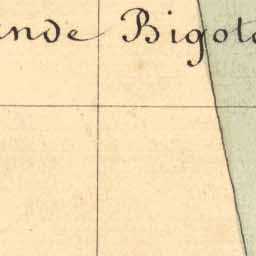 ande Bigote